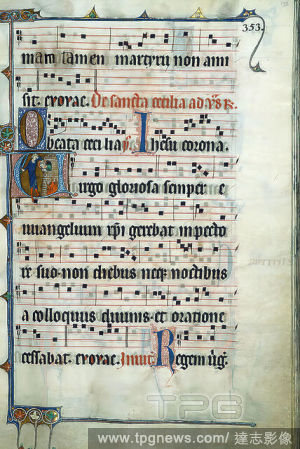 353
mam tamen martyrii non ami
sit. evovae. De sancta cecilia ad vs R.
O beata ceci lia ps. Ihesu corona.
Virgo gloriosa semper e
uuangelium xpi gerebat in pecto
re suo non diebus neq noctibus
a colloquiis diuinis et oratione
cessabat. evovae. Inuit. Regem uirg.
TPG
www.tpgnews.com/達志影像